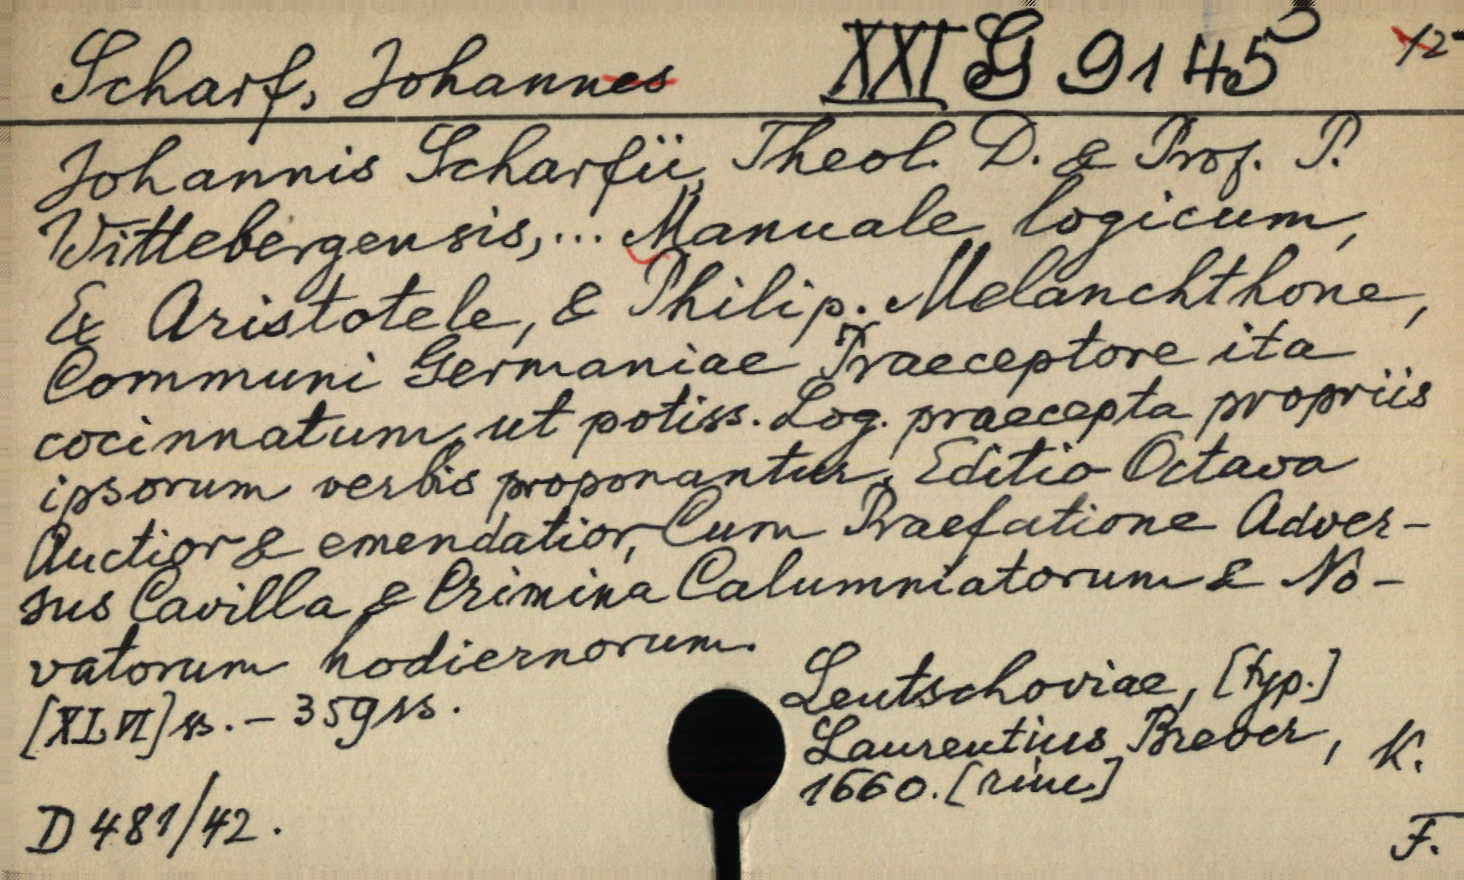 Scharf, Johannes XXI G 9145 12
Johannis Scharfii, Theol. D. & Prof. P.
Wittebergensis,... Manuale logicum,
Ex Aristotele, & Philip. Melanchthone,
Communi Germaniae Praeceptore ita
cocinnatum, ut potiss. Log. praecepta propriis
ipsorum verbis proponantur. Editio Octava
Auctior & emendatior, Cum Praefatione Adver-
sus Cavilla & Crimina Calumniatorum & No-
vatorum hodiernorum.
Leutschoviae, [typ.]
[XLVI] ss. – 359 ss.
Laurentius Brever, K.
1660.
D 481/42.
F.